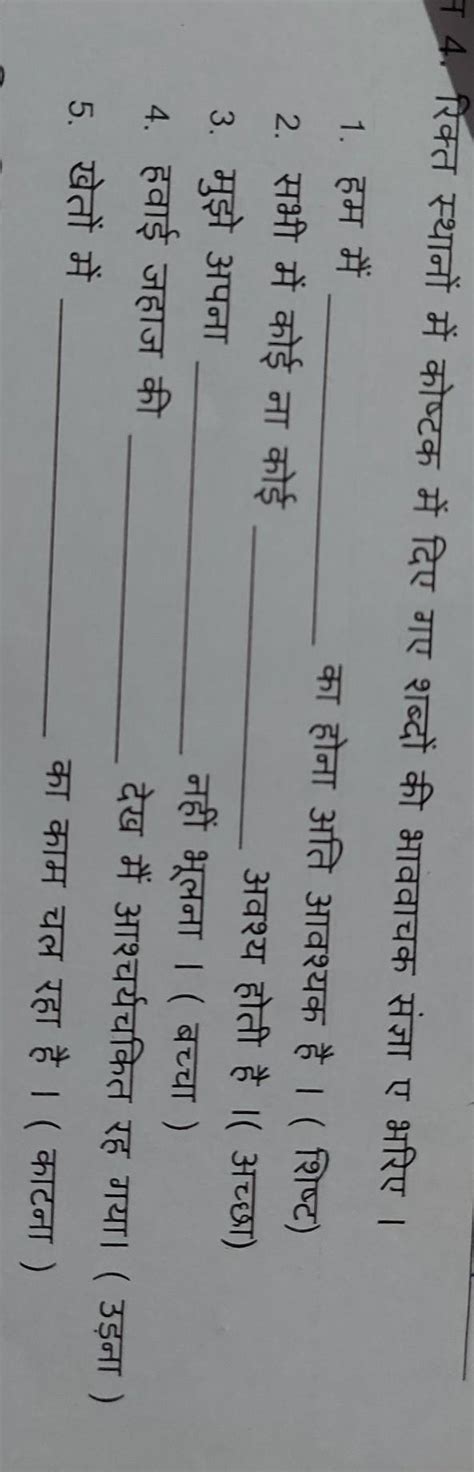 4. रिक्त स्थानों में कोष्टक में दिए गए शब्दों की भाववाचक संज्ञा ए भरिए ।
1. हम मैं ____________ का होना अति आवश्यक है । ( शिष्ट)
2. सभी में कोई ना कोई ____________ अवश्य होती है ।( अच्छा)
3. मुझे अपना ____________ नहीं भूलना । ( बच्चा )
4. हवाई जहाज की ____________ देख में आश्चर्यचकित रह गया। ( उड़ना )
5. खेतों में ____________ का काम चल रहा है । ( काटना )